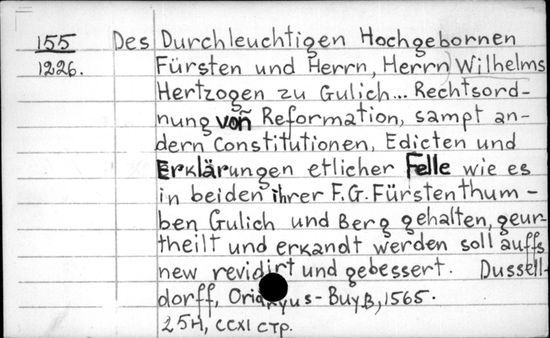 155 Des Durchleuchtigen Hochgebornen
1226. Fürsten und Herrn, Herrn Wilhelms
Hertzogen zu Gulich... Rechtsord-
nung von̄ Reformation, sampt an-
dern Constitutionen, Edicten und
Erklärungen etlicher Felle wie es
in beiden ihrer F.G. Fürstenthum-
ben Gulich und Berg gehalten, geur-
theilt und erkandt werden soll auffs
new revidirt und gebessert. Dussel-
dorff, Buyß, 1565.
25H, CCXI стр.